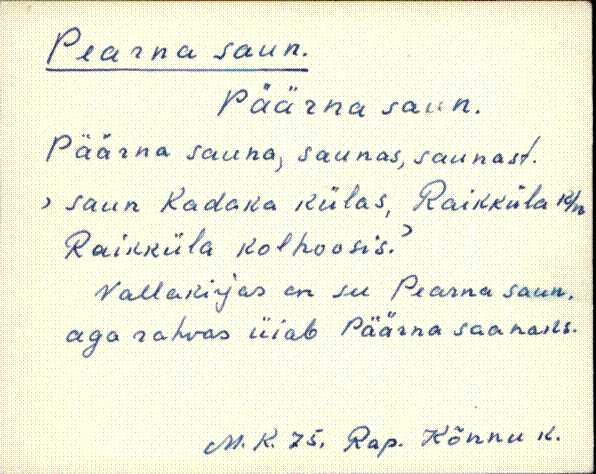 Pearna saun.
Päärna saun.
Päärna sauna, saunas, saunast.
, saun Kadaka külas, Raikküla k/n
Raikküla kolhoosis.’
Vallakirjas on su Pearna saun,
aga rahvas üiab Päärna saanaks.
M. K. 75, Rap. Kõnnu k.